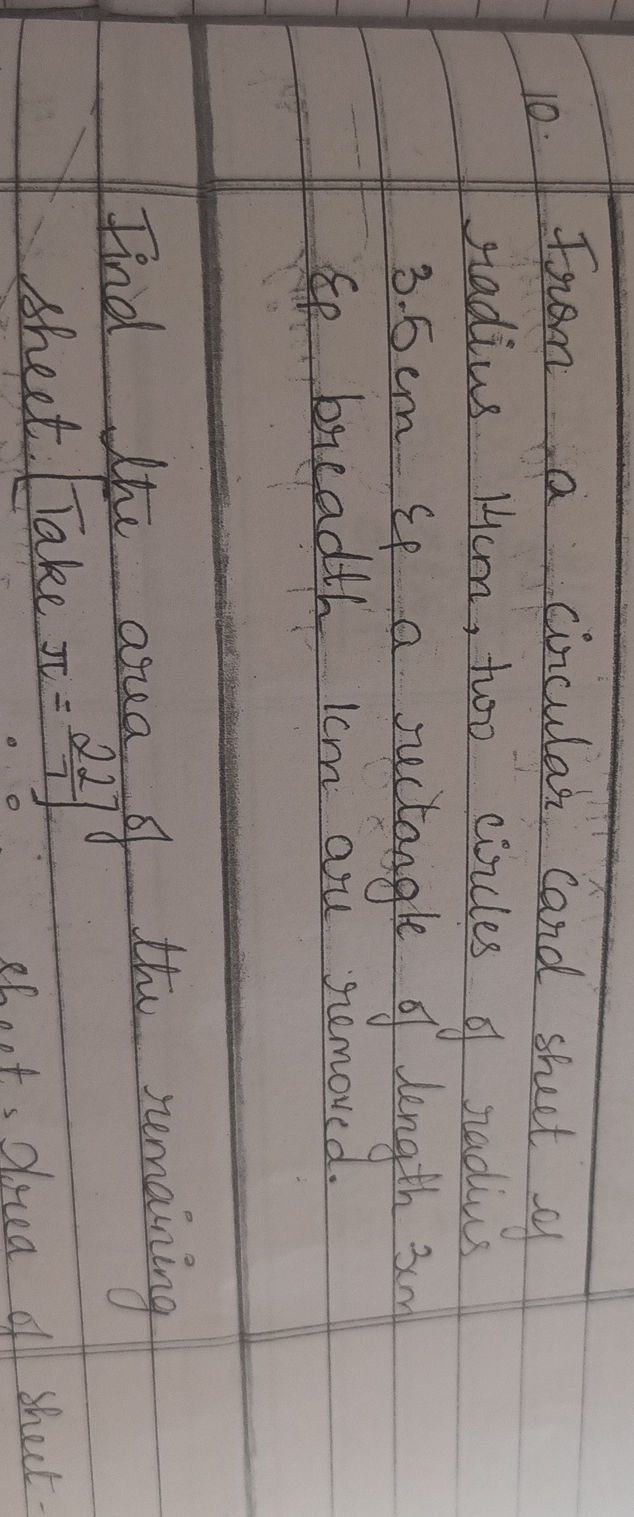 10. From a circular card sheet of
radius 14cm, two circles of radius
3.5cm & a rectangle of length 3cm
& breadth 1cm are removed.
Find the area of the remaining
sheet. [Take π = 22/7]
sheet = Area of sheet -